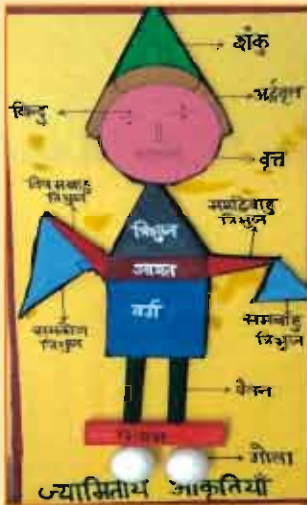 शंकु
अर्द्धवृत्त
बिन्दु
वृत्त
विषमबाहु
त्रिभुज
समद्विबाहु
त्रिभुज
त्रिभुज
आयत
वर्ग
समकोण
त्रिभुज
समबाहु
त्रिभुज
बेलन
गोला
ज्यामितीय आकृतियाँ